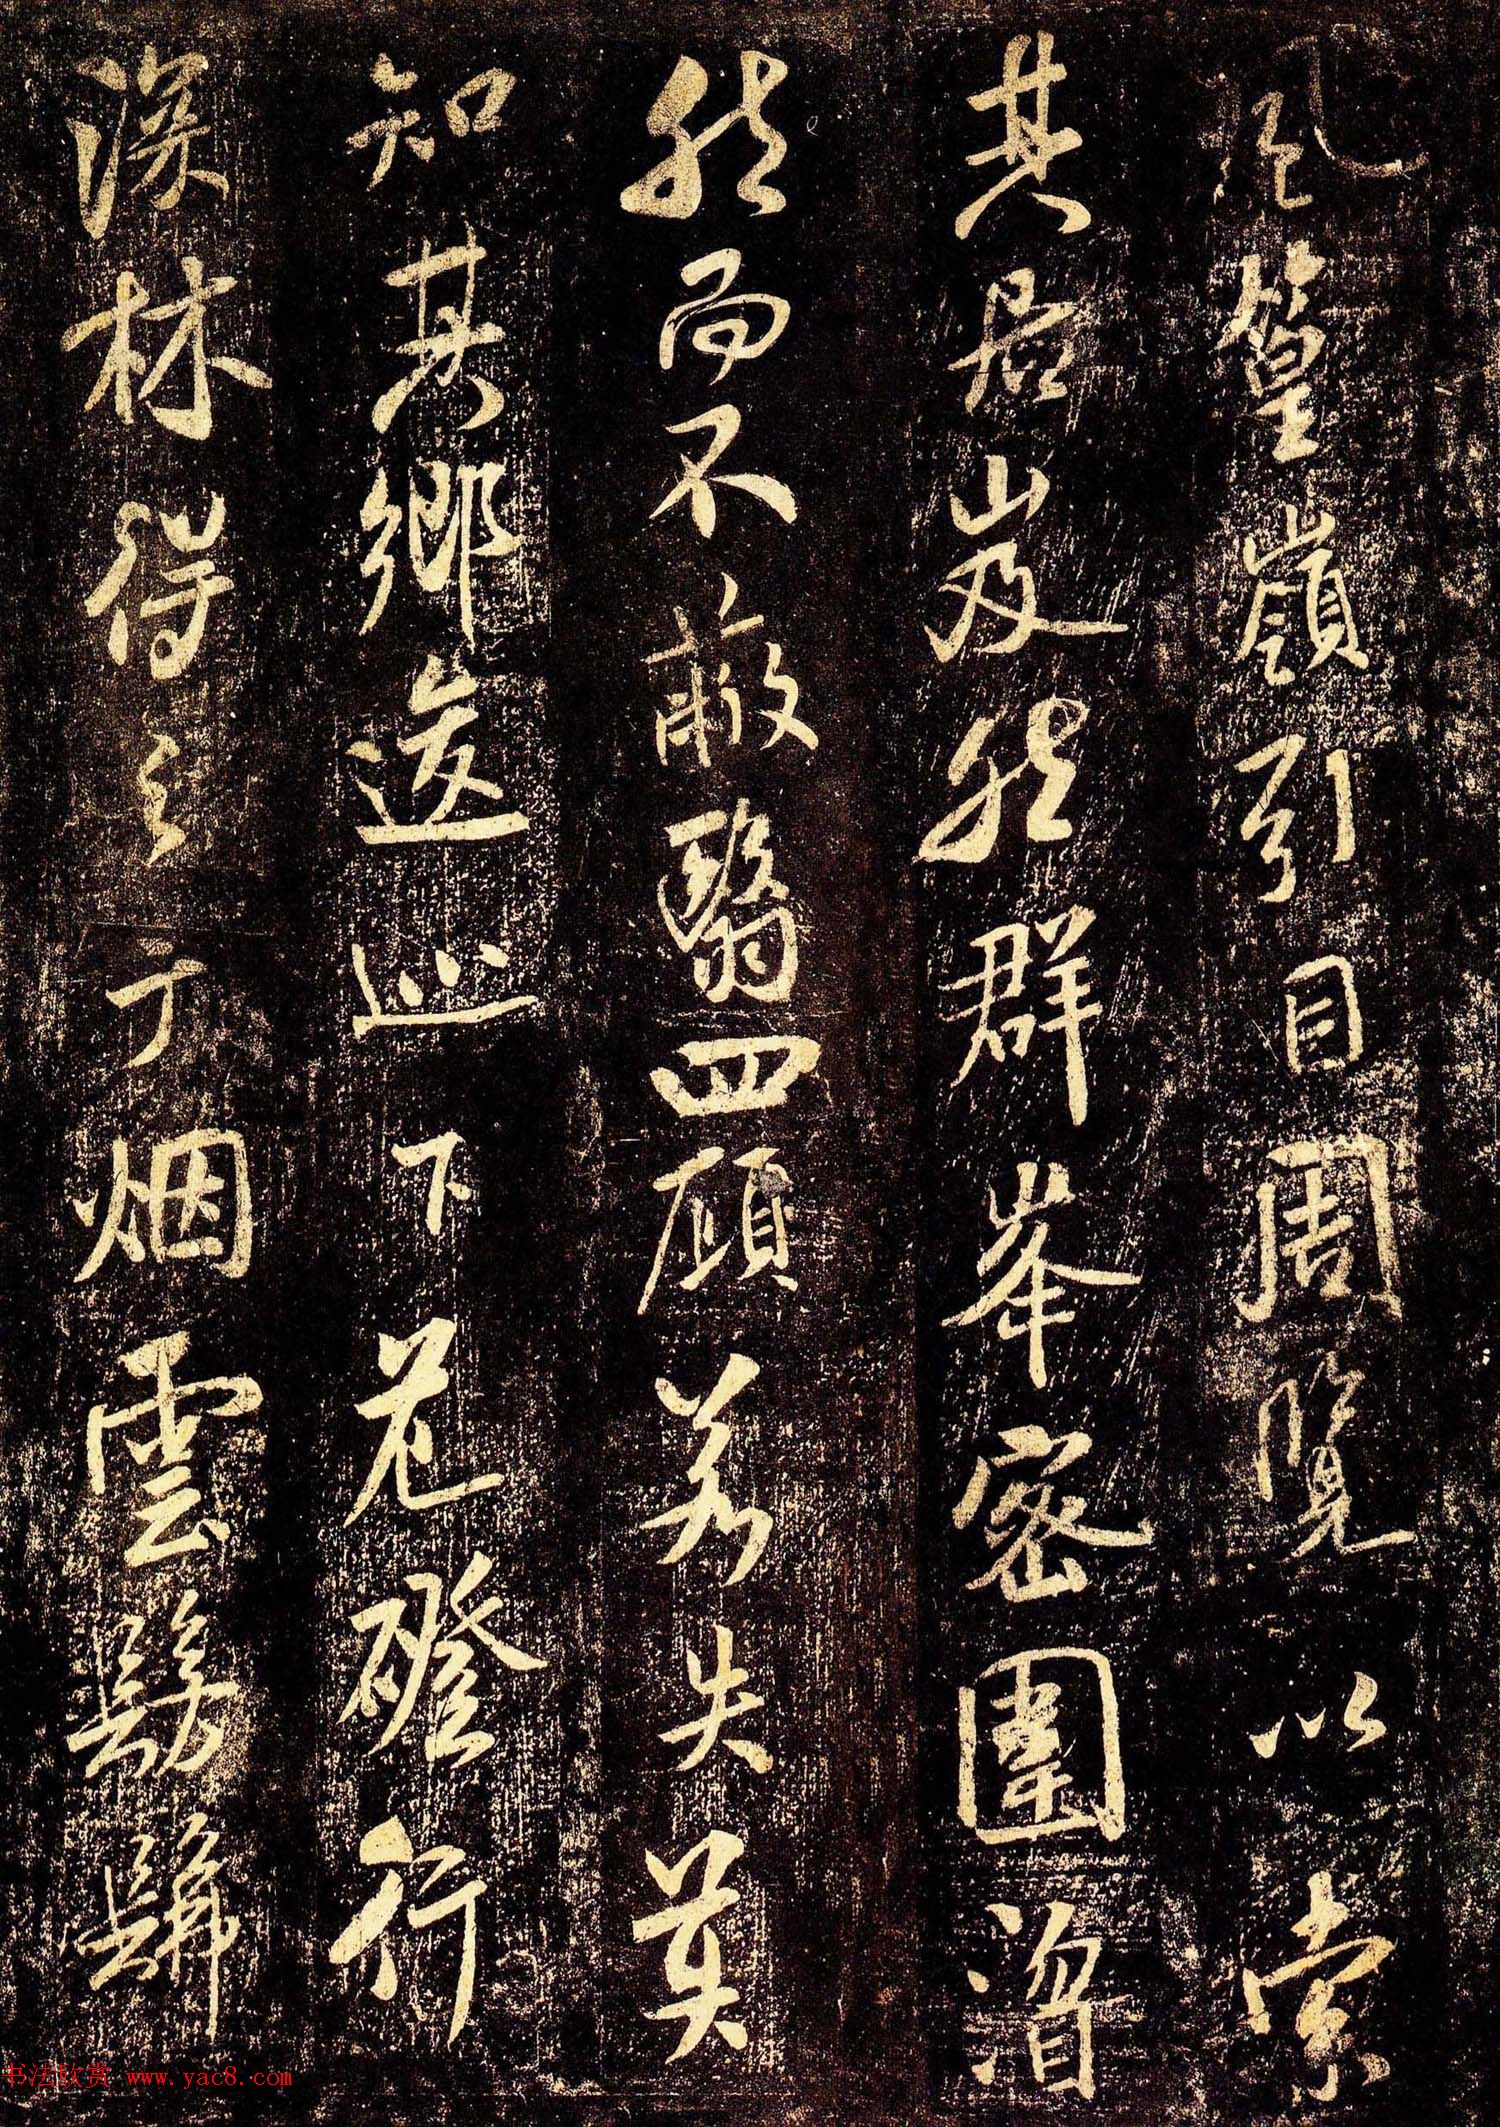 風篁嶺引目周覽以索
其居岌然群峯密圍溍
然而不蔽翳四頋若失莫
知其鄉逡巡下危磴行
深林得之于烟雲髣髴
书法欣赏 www.yac8.com